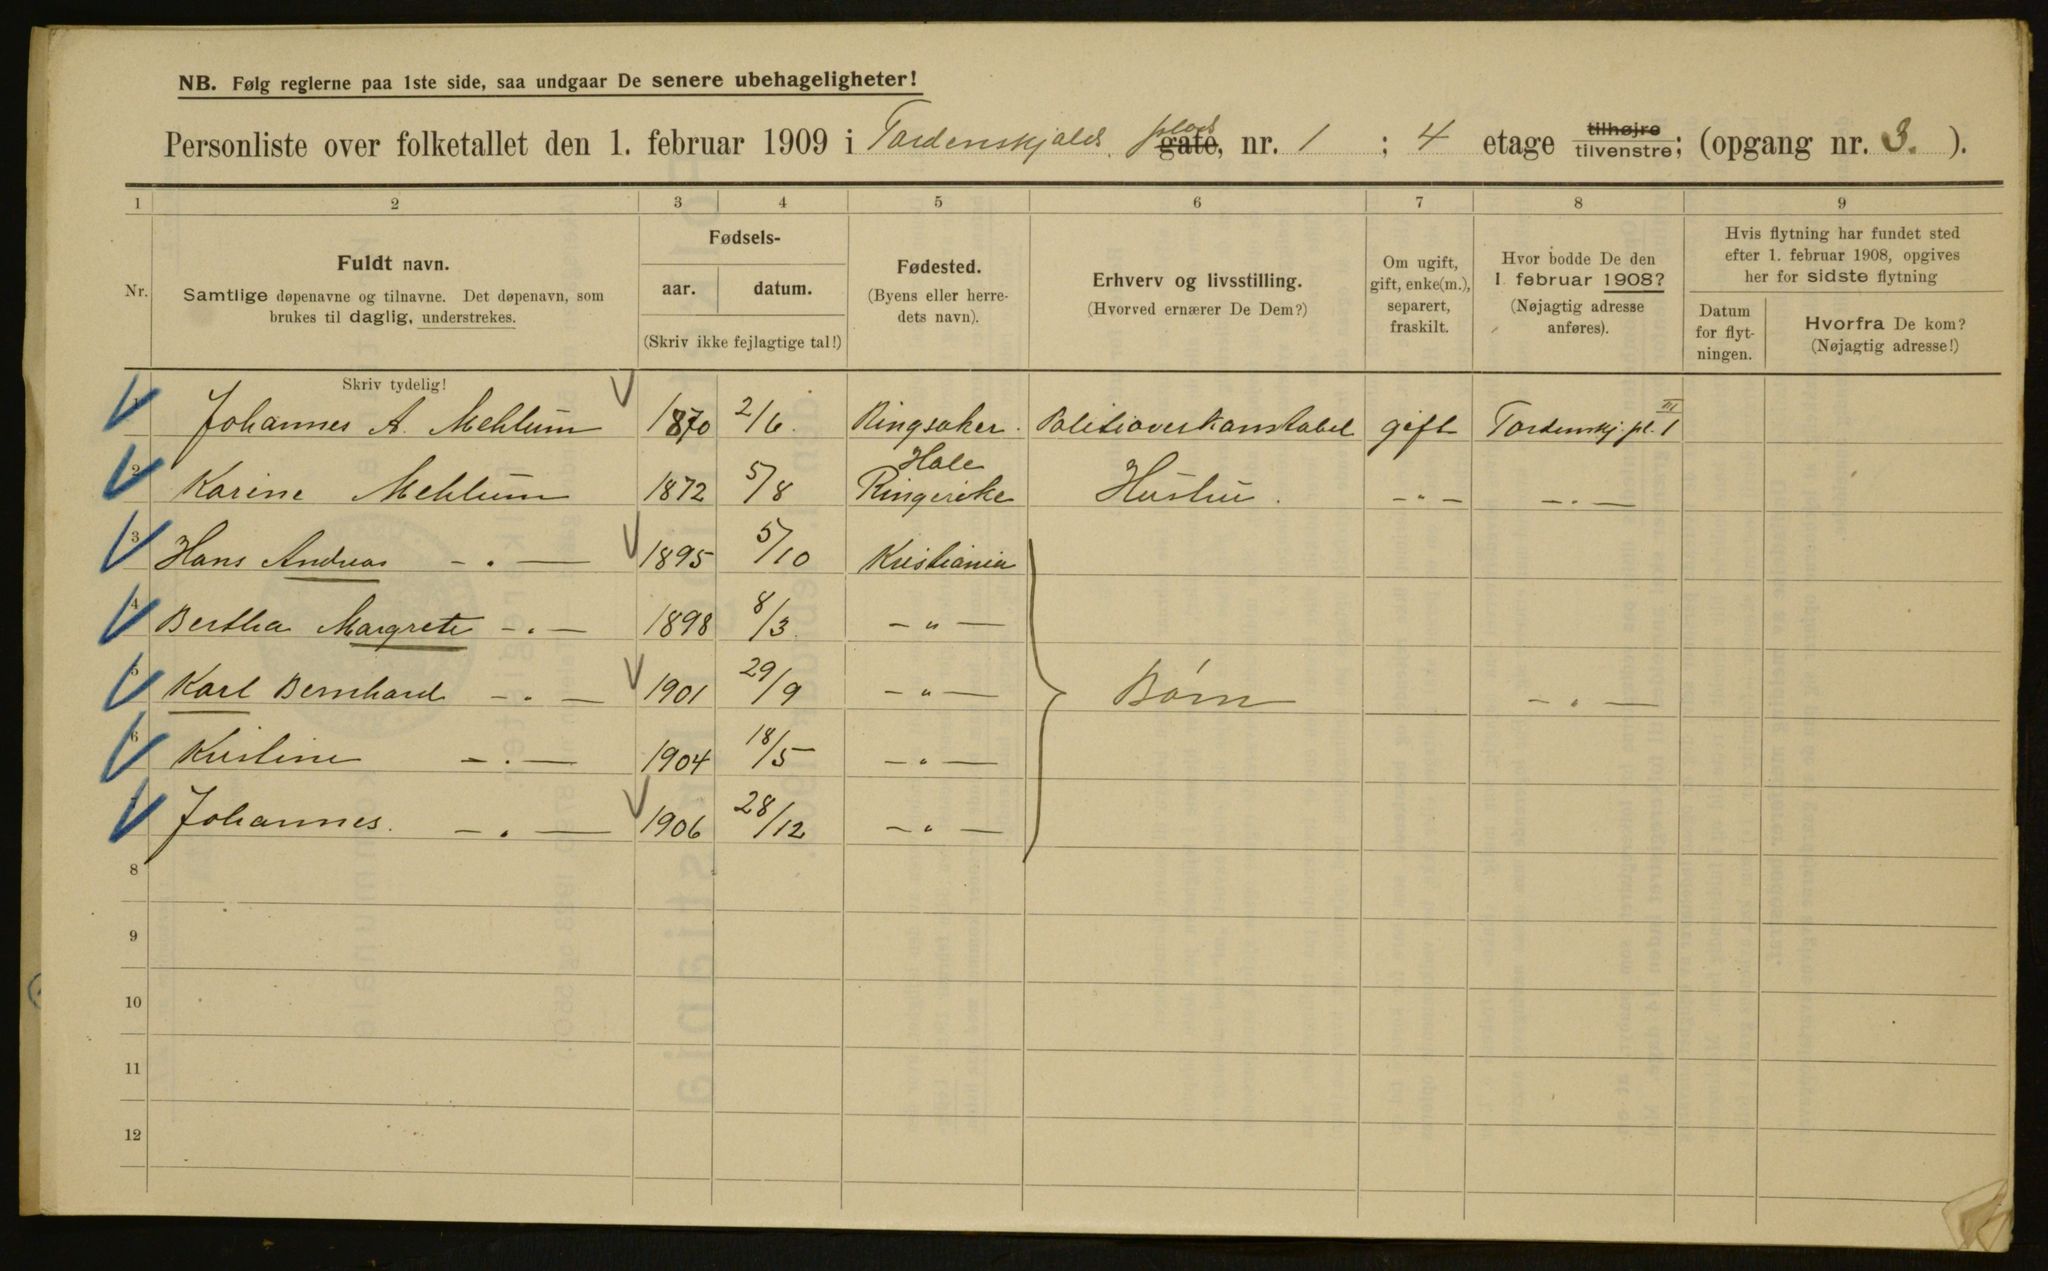 NB. Følg reglerne paa 1ste side, saa undgaar De senere ubehageligheter!
Personliste over folketallet den 1. februar 1909 i Tordenskjolds plads gate, nr. 1 ; 4 etage tilhøjre tilvenstre; (opgang nr. 3. ).
1 2 3 4 5 6 7 8 9
Nr.
Fuldt navn.
Samtlige døpenavne og tilnavne. Det døpenavn, som
brukes til daglig, understrekes.
Fødsels-
aar. datum.
(Skriv ikke fejlagtige tal!)
Fødested.
(Byens eller herre-
dets navn).
Erhverv og livsstilling.
(Hvorved ernærer De Dem?)
Om ugift,
gift, enke(m.),
separert,
fraskilt.
Hvor bodde De den
1. februar 1908?
(Nøjagtig adresse
anføres).
Hvis flytning har fundet sted
efter 1. februar 1908, opgives
her for sidste flytning
Datum
for flyt-
ningen.
Hvorfra De kom?
(Nøjagtig adresse!)
Skriv tydelig!
1 Johannes A. Mehlum 1870 2/6. Ringsaker. Politioverkonstabel gift Tordenskj. pl. 1 III
2 Karine Mehlum 1872 5/8 Hole Ringerike Hustru. — " — — " —
3 Hans Andreas — " — 1895 5/10 Kristiania
4 Bertha Margrete — " — 1898 8/3. — " —
5 Karl Bernhard — " — 1901 29/9 — " — Børn — " —
6 Kristine — " — 1904 18/5 — " —
7 Johannes. — " — 1906 28/12 — " —
8
9
10
11
12